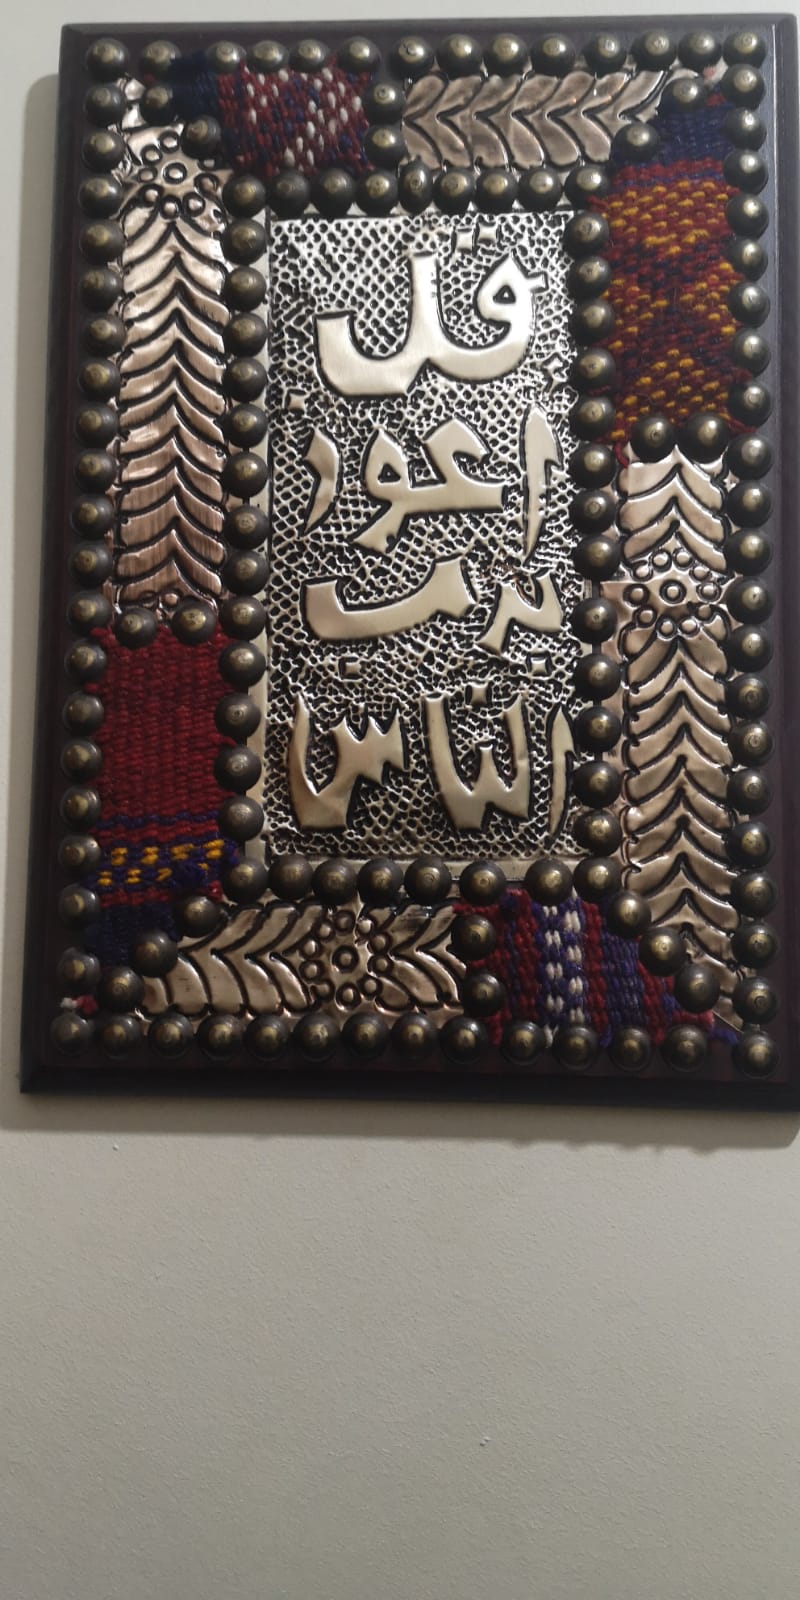 قل
اعوذ
برب
الناس